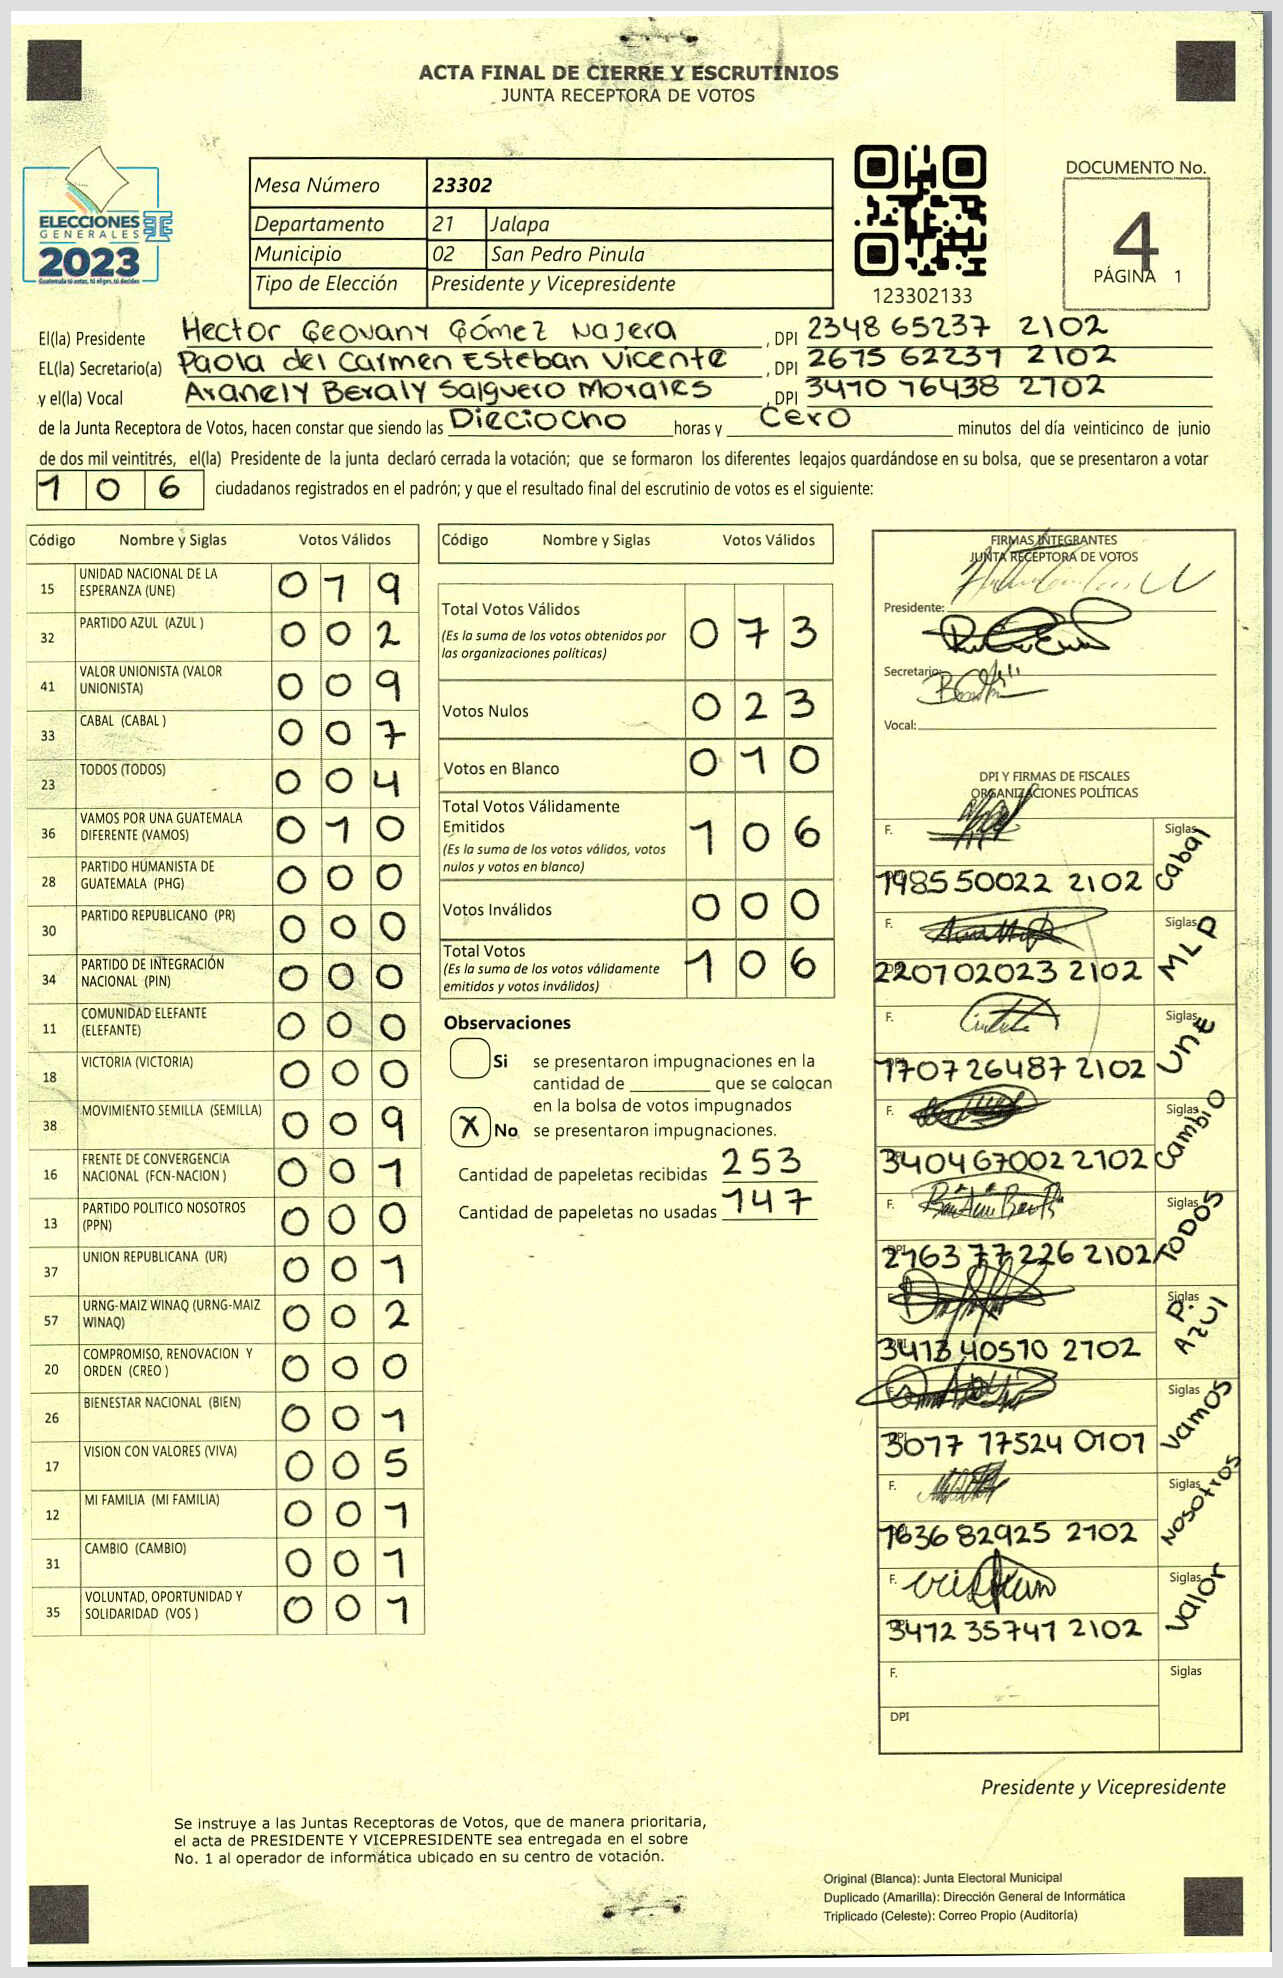 ACTA FINAL DE CIERRE Y ESCRUTINIOS
JUNTA RECEPTORA DE VOTOS
ELECCIONES
GENERALES
2023
Guatemala tú votas, tú eliges, tú decides
Mesa Número 23302
Departamento 21 Jalapa
Municipio 02 San Pedro Pinula
Tipo de Elección Presidente y Vicepresidente
123302133
DOCUMENTO No.
4
PÁGINA 1
El(la) Presidente Hector Geovany Gómez Najera, DPI 2348 65237 2102
EL(la) Secretario(a) Paola del Carmen Esteban Vicente, DPI 2675 62237 2102
y el(la) Vocal Aranely Beraly Salguero Morales, DPI 3470 76438 2102
de la Junta Receptora de Votos, hacen constar que siendo las Dieciocho horas y Cero minutos del día veinticinco de junio
de dos mil veintitrés, el(la) Presidente de la junta declaró cerrada la votación; que se formaron los diferentes legajos guardándose en su bolsa, que se presentaron a votar
106 ciudadanos registrados en el padrón; y que el resultado final del escrutinio de votos es el siguiente:
Código Nombre y Siglas Votos Válidos
15 UNIDAD NACIONAL DE LA ESPERANZA (UNE) 019
32 PARTIDO AZUL (AZUL ) 002
41 VALOR UNIONISTA (VALOR UNIONISTA) 009
33 CABAL (CABAL ) 007
23 TODOS (TODOS) 004
36 VAMOS POR UNA GUATEMALA DIFERENTE (VAMOS) 010
28 PARTIDO HUMANISTA DE GUATEMALA (PHG) 000
30 PARTIDO REPUBLICANO (PR) 000
34 PARTIDO DE INTEGRACIÓN NACIONAL (PIN) 000
11 COMUNIDAD ELEFANTE (ELEFANTE) 000
18 VICTORIA (VICTORIA) 000
38 MOVIMIENTO SEMILLA (SEMILLA) 009
16 FRENTE DE CONVERGENCIA NACIONAL (FCN-NACION ) 001
13 PARTIDO POLITICO NOSOTROS (PPN) 000
37 UNION REPUBLICANA (UR) 001
57 URNG-MAIZ WINAQ (URNG-MAIZ WINAQ) 002
20 COMPROMISO, RENOVACION Y ORDEN (CREO ) 000
26 BIENESTAR NACIONAL (BIEN) 001
17 VISION CON VALORES (VIVA) 005
12 MI FAMILIA (MI FAMILIA) 001
31 CAMBIO (CAMBIO) 001
35 VOLUNTAD, OPORTUNIDAD Y SOLIDARIDAD (VOS ) 001
Código Nombre y Siglas Votos Válidos
Total Votos Válidos 073
(Es la suma de los votos obtenidos por
las organizaciones políticas)
Votos Nulos 023
Votos en Blanco 010
Total Votos Válidamente
Emitidos 106
(Es la suma de los votos válidos, votos
nulos y votos en blanco)
Votos Inválidos 000
Total Votos 106
(Es la suma de los votos válidamente
emitidos y votos inválidos)
Observaciones
Si se presentaron impugnaciones en la
cantidad de ________ que se colocan
en la bolsa de votos impugnados
X No se presentaron impugnaciones.
Cantidad de papeletas recibidas 253
Cantidad de papeletas no usadas 147
FIRMAS INTEGRANTES
JUNTA RECEPTORA DE VOTOS
Presidente:
Secretario:
Vocal:
DPI Y FIRMAS DE FISCALES
ORGANIZACIONES POLÍTICAS
F. Siglas Cabal
DPI 198550022 2102
F. Siglas MLP
DPI 220702023 2102
F. Siglas UNE
DPI 1707 26487 2102
F. Siglas Cambio
340467002 2102
F. Siglas TODOS
DPI 2163 77226 2102
F. Siglas P. AZUl
DPI 3413 40570 2102
F. Siglas Vamos
DPI 3077 77524 0101
F. Siglas Nosotros
DPI 1636 82925 2102
F. Siglas Valor
DPI 3412 35747 2102
F. Siglas
DPI
Presidente y Vicepresidente
Se instruye a las Juntas Receptoras de Votos, que de manera prioritaria,
el acta de PRESIDENTE Y VICEPRESIDENTE sea entregada en el sobre
No. 1 al operador de informática ubicado en su centro de votación.
Original (Blanca): Junta Electoral Municipal
Duplicado (Amarilla): Dirección General de Informática
Triplicado (Celeste): Correo Propio (Auditoría)